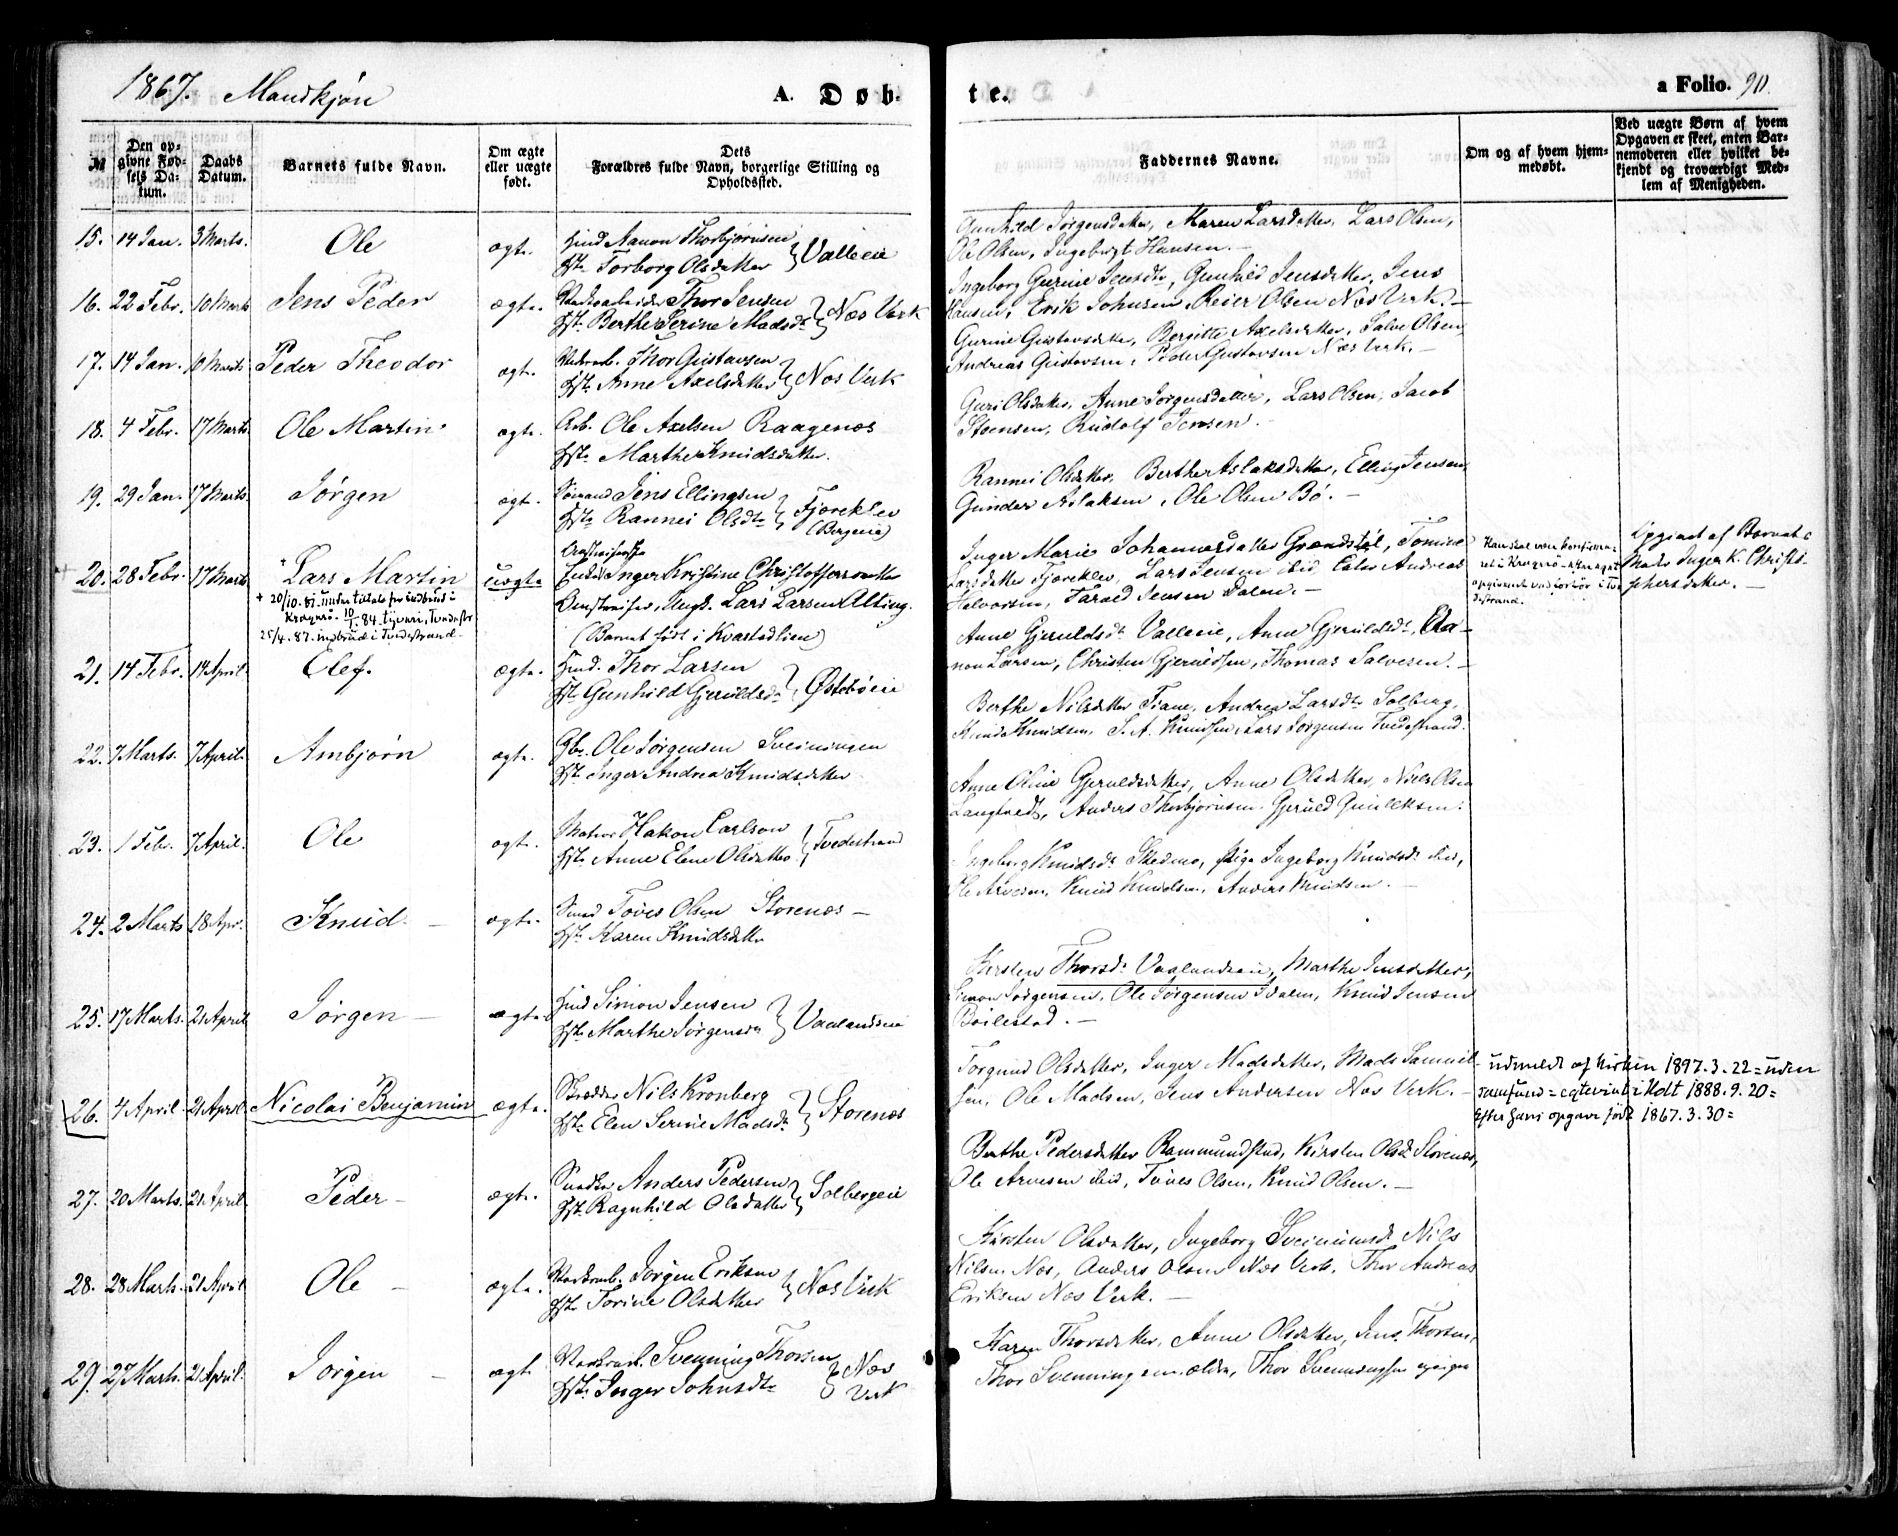 1867. Mandkjøn
A. Døb-
te.
a Folio. 90.
№
Den op-
givne Fød-
sels Da-
tum.
Daabs
Datum.
Barnets fulde Navn.
Om ægte
eller uægte
født.
Dets
Forældres fulde Navn, borgerlige Stilling og
Opholdssted.
Faddernes Navne.
Om og af hvem hjem-
medøbt.
Ved uægte Børn af hvem
Opgaven er skeet, enten Bar-
nemoderen eller hvilket be-
kjendt og troværdigt Med-
lem af Menigheden.
15. 14 Jan. 3 Marts. Ole ægte. Aanon Thorbjørnsen
Torborg Olsdatter } Valleeie
Gunhild Jørgensdatter, Maren Larsdatter, Lars Olsen,
Ole Olsen, Ingeborgt Hansen.-
16. 22 Febr. 10 Marts Jens Peder ægte. Thor Jensen
Berthe Serine Madsdt. } Næs Verk
Ingeborg Gurine Jensdt., Gunhild Jensdatter, Jens
Hansen, Erik Johnsen, Reier Olsen Næs Verk.-
17. 14 Jan. 10 Marts Peder Theodor ægte. Thor Gustavsen
Anne Axelsdatter } Næs Verk
Gurine Gustavsdatter, Bergitte Axelsdatter, Salve Olsen,
Andreas Gustavsen, Peder Gustavsen Næs Verk.-
18. 4 Febr. 17 Marts Ole Martin ægte. Arb. Ole Axelsen Raagenæs
Marthe Knudsdatter.
Guri Olsdatter, Anne Jørgensdatter, Lars Olsen, Jacob
Steensen, Rudolf Jensen.
19. 29 Jan. 17 Marts. Jørgen ægte. Sømand Jens Ellingsen
Rannei Olsdt. } Fjæreklev
(Bergeeie)
Rannei Olsdatter, Berthe Aslaksdatter, Elling Jensen,
Gunder Aslaksen, Ole Olsen Bø.-
20. 28 Febr. 17 Marts + Lars Martin uægte Inger Kristine Christoffersdatter
Ungk. Lars Larsen Alting.
(Barnet født i Kvastadlien)
+ 20/10-81- under tiltale for indbrud i
Kragerø. 10/1.84. tyveri, Tvedestr
25/4.87. indbrud i Tvedestrand.
Inger Marie Johannesdatter Grændstøl, Tomine
Larsdatter Fjæreklev, Lars Jensen ibid, Andreas
Halvorsen, Tarald Jensen Dalen.-
Opgivet af Barnets
Moder Inger K. Christo-
phersdatter.-
21. 14 Febr. 14 April. Elef. ægte. Thor Larsen
Gunhild Gjeruldsdt. } Østebøeie
Anne Gjeruldsdt. Valleeie, Anne Gjeruldsdt., Aa-
non Larsen, Christen Gjeruldsen, Thomas Salvesen.-
22. 7 Marts. 7 April. Ambjørn ægte. Gbr. Ole Jørgensen Sveinungen
Inger Andrea Knudsdatter
Berthe Nilsdatter Fiane, Andrea Larsdt. Solberg,
Knud Knudsen, S. A. Knudsen, Lars Jørgensen Tvedestrand.
23. 1 Febr. 7 April. Ole ægte. Matros Hakon Carlson
Anne Elene Olsdatter } Tvedestrand
Anne Oline Gjeruldsdatter, Anne Olsdatter, Niels Olsen
Langtvedt, Anders Thorbjørnsen, Gjeruld Gunleksen.
24. 2 Marts 18 Apr. Knud. - ægte. Smed Toves Olsen Storenæs -
Karen Knudsdatter
Ingeborg Knudsdt. Skedmo, Pige Ingeborg Knudsdt. ibid,
Ole Arvesen, Knud Knudsen, Anders Knudsen.-
25. 17 Marts. 21 April Jørgen - ægte. Simon Jensen
Marthe Jørgensdt. } Vaalandseie
Kirsten Thorsdt. Vaalandseie, Marthe Jensdatter,
Simon Jørgensen, Ole Jørgensen Dalen, Knud Jensen
Bøilestad.-
26. 4 April. 21 April Nicolai Benjamin ægte. Skrædder Nils Kronberg
Elen Serine Madsdt. } Storenæs
Torgund Olsdatter, Inger Madsdatter, Mads Samuel-
sen, Ole Madsen, Jens Andersen Næs Verk.-
udmeldt af kirken 1897.3.22 = uden
samfund = egteviet i Holt 1888.9.20 =
Efter hans opgave født 1867.3.30 =
27. 20 Marts. 21 April. Peder - ægte. Anders Pedersen
Ragnhild Olsdatter } Solbergeie
Berthe Pedersdatter Rammundstad, Kirsten Olsdt. Storenæs,
Ole Arvesen ibid, Toves Olsen, Knud Olsen.-
28. 28 Marts. 21 April Ole - ægte. Jørgen Eriksen
Torine Olsdatter } Næs Verk
Kirsten Olsdatter, Ingeborg Sveinunsdt. Nils
Nilsen Næs, Anders Olsen Næs Verk, Thor Andreas
Eriksen Næs Verk.-
29. 27 Marts. 21 April. Jørgen - ægte. Svenning Thorsen
Inger Johnsdt. } Næs
Verk
Karen Thorsdatter, Anne Olsdatter, Jens Thorsen,
Thor Svenningsen ældre, Thor Svenningsen yngre